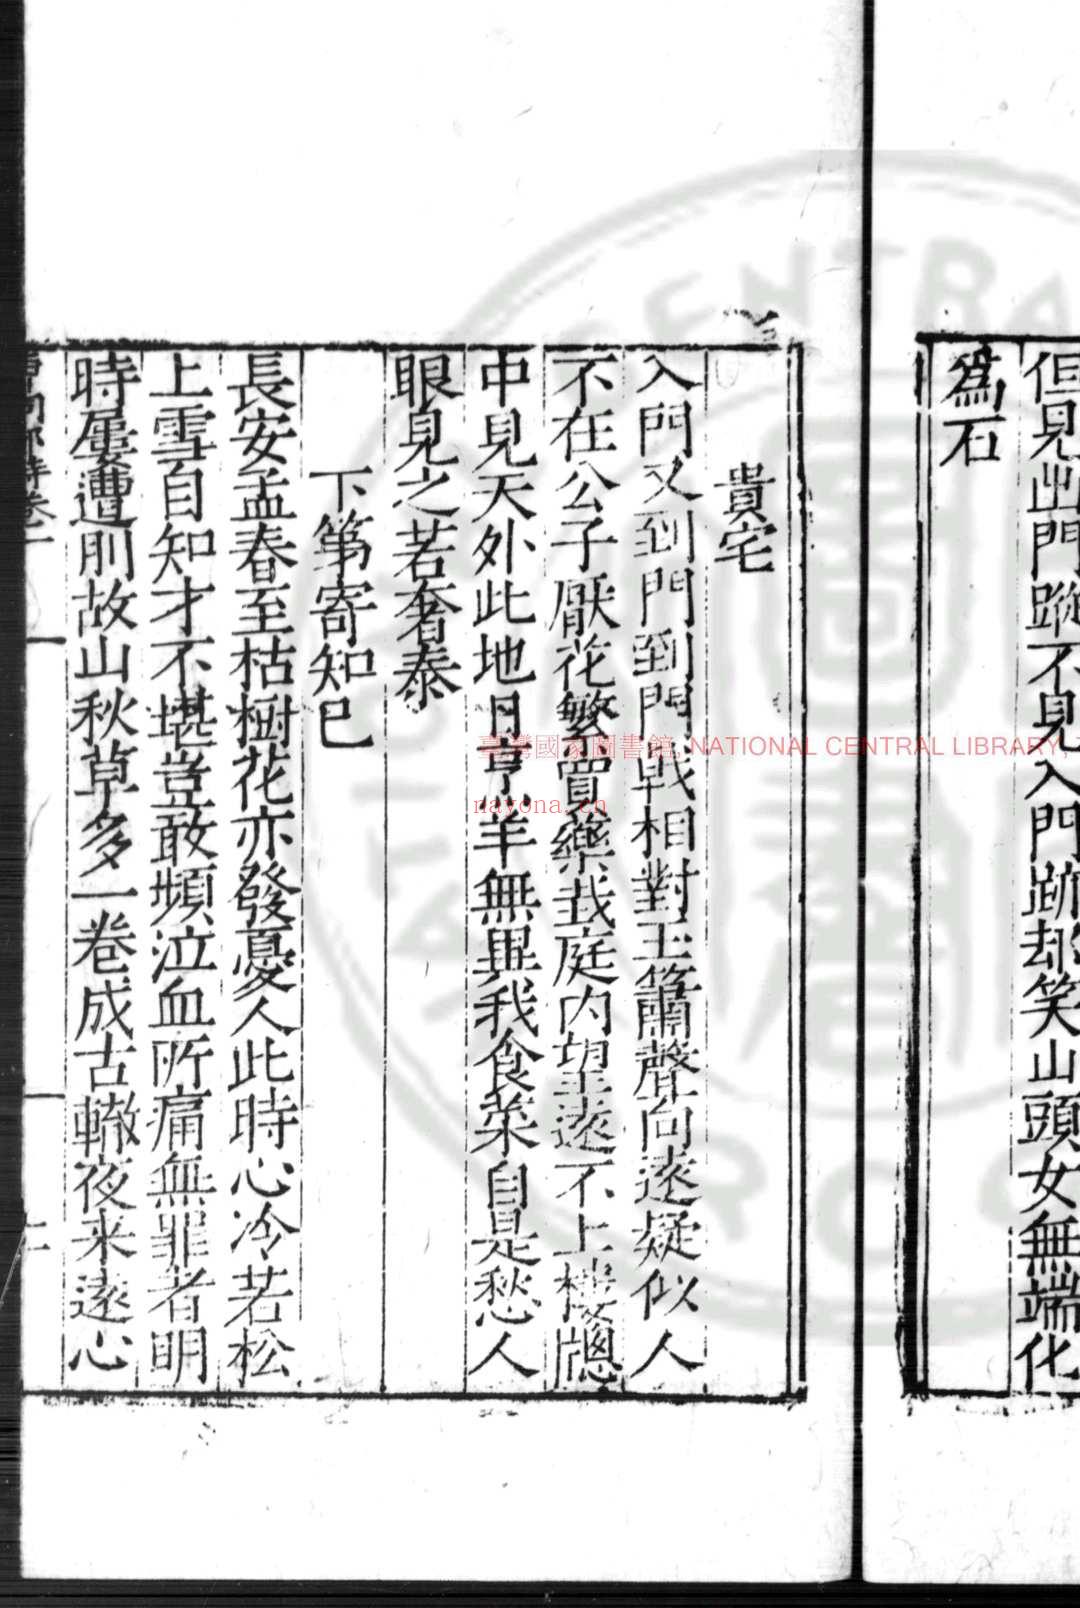 但見出門蹤不見入門跡却笑山頭女無端化
為石
貴宅
入門又到門到門戟相對玉簫聲向遠疑似人
不在公子厭花繁買藥栽庭内望遠不上樓牕
中見天外此地日烹羊無異我食菜自是愁人
眼見之若奢泰
下第寄知己
長安孟春至枯樹花亦發憂人此時心冷若松
上雪自知才不堪豈敢頻泣血所痛無罪者明
時屢遭刖故山秋草多一卷成古轍夜来遠心
臺灣國家圖書館, NATIONAL CENTRAL LIBRARY,
nayona.cn
CENTRA